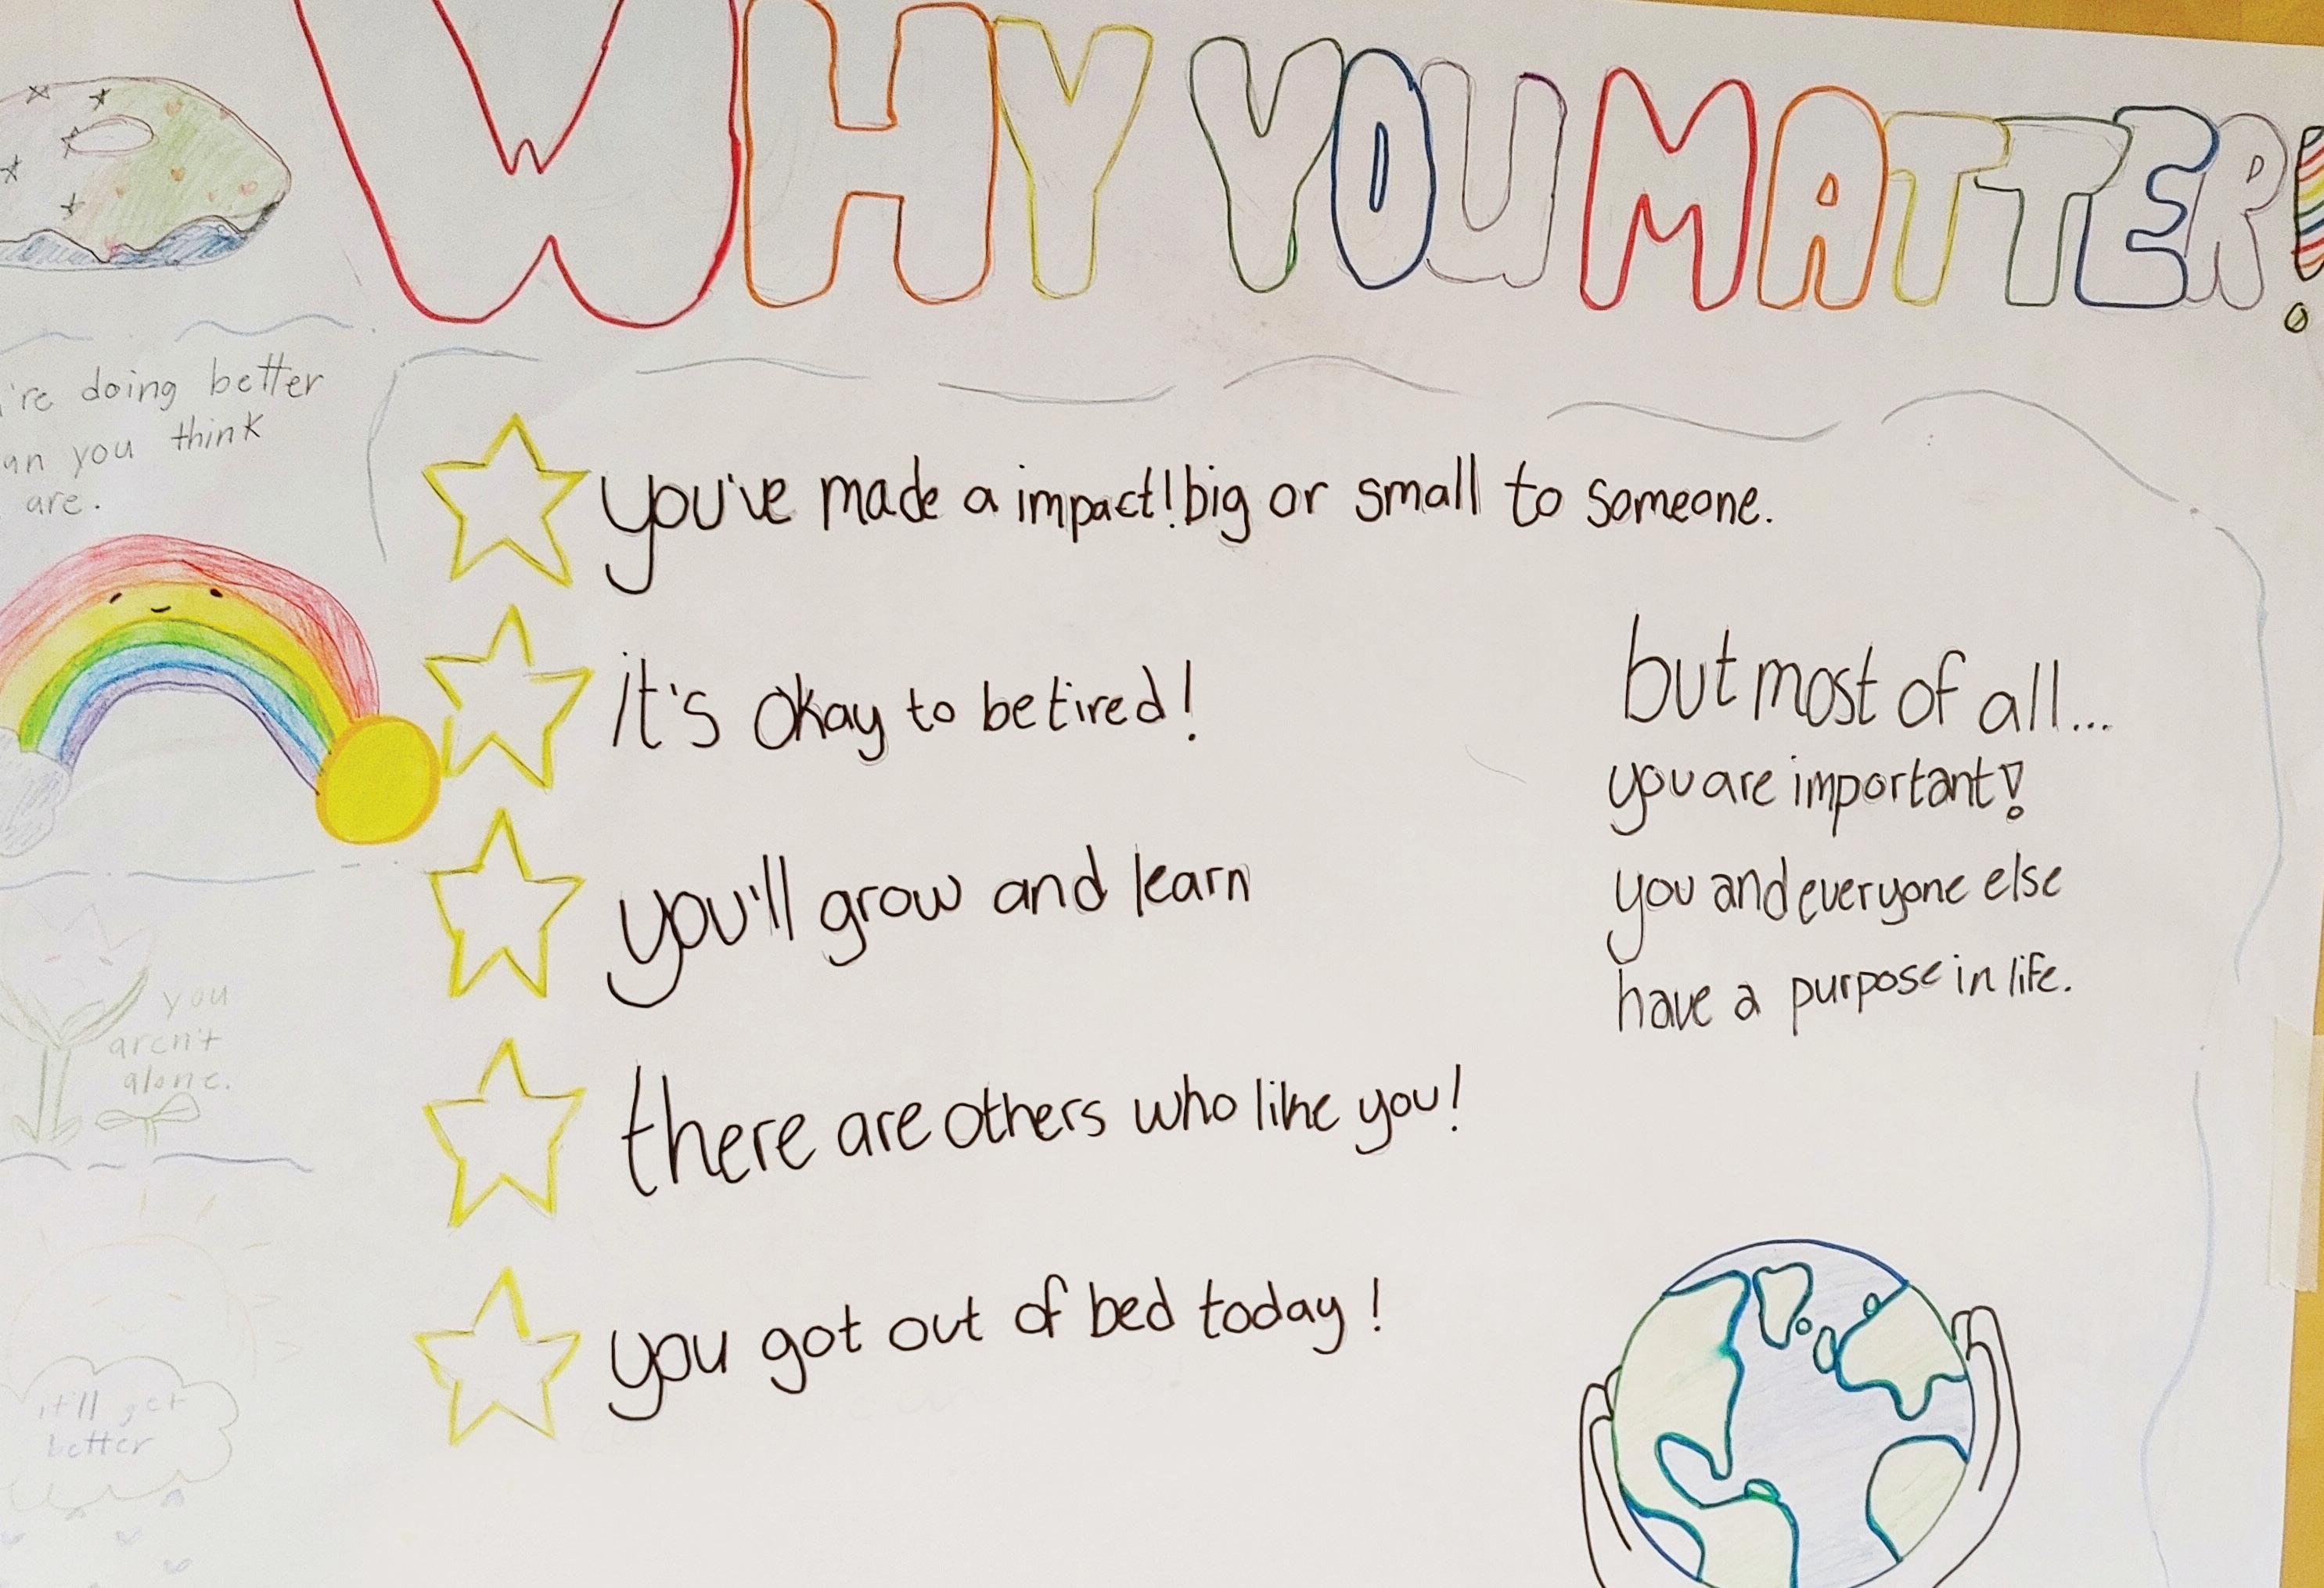 WHY YOU MATTER!
're doing better
an you think
are.
you've made a impact! big or small to someone.
it's okay to be tired!
you'll grow and learn
there are others who like you!
you got out of bed today!
but most of all...
you are important!
you and everyone else
have a purpose in life.
you
aren't
alone.
it'll get
better